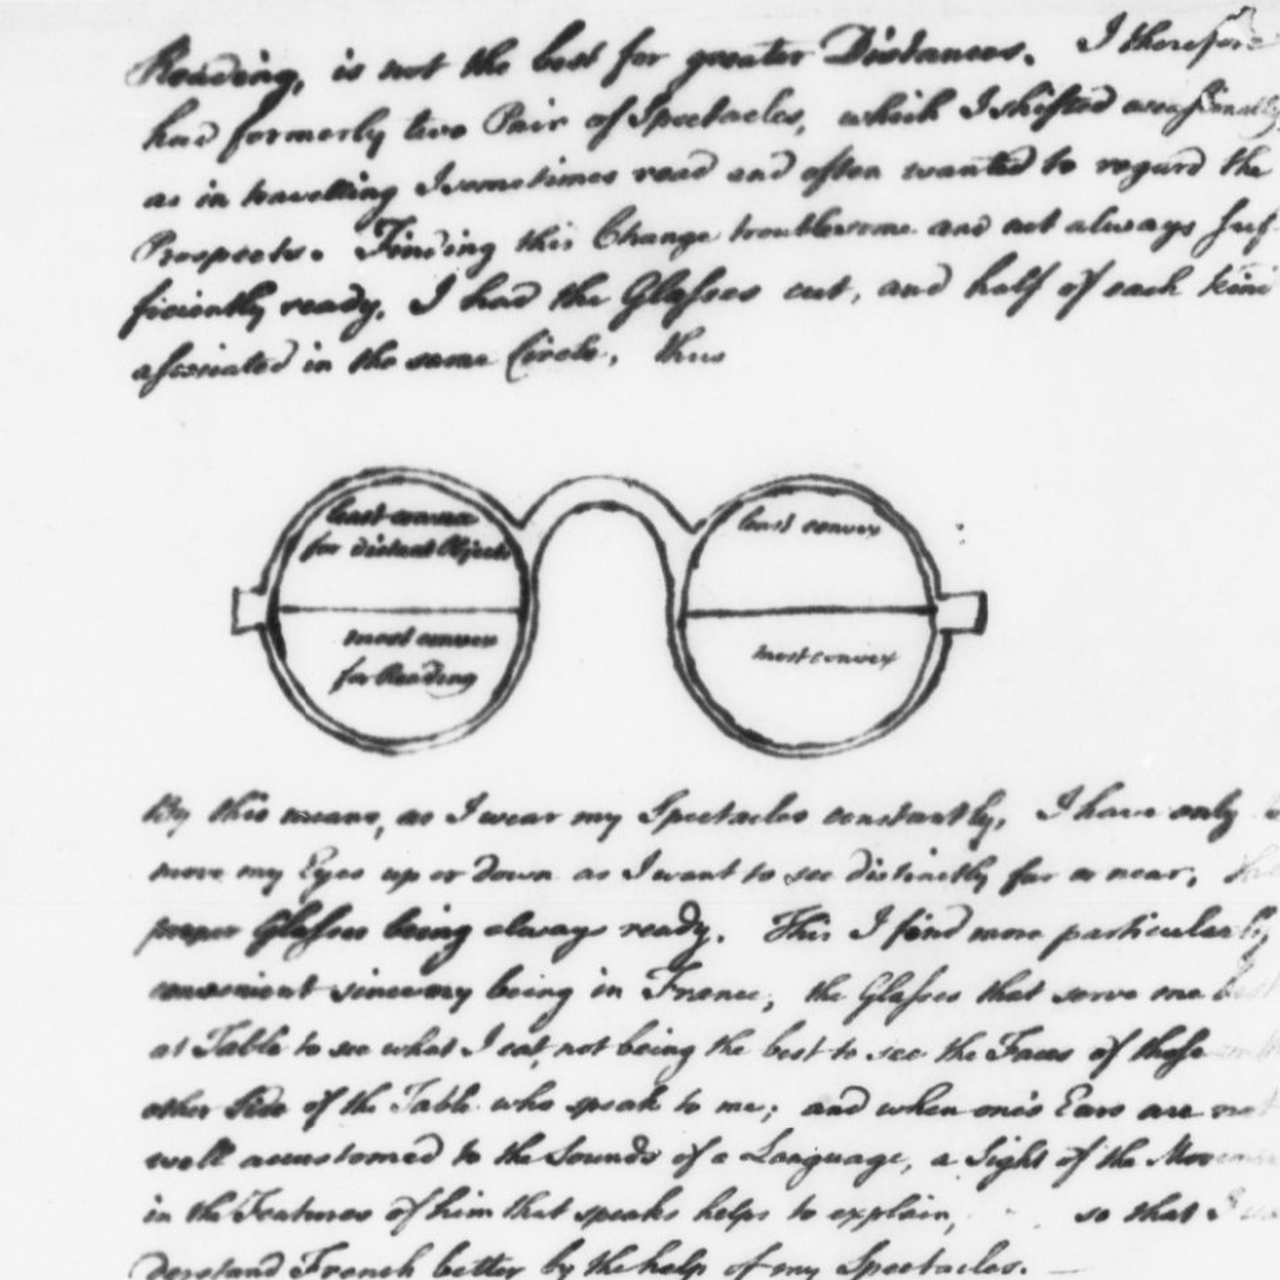 Reading, is not the best for greater Distances. I therefore
had formerly two Pair of Spectacles, which I shifted occasionally,
as in travelling I sometimes read and often wanted to regard the
Prospects. Finding this Change troublesome and not always suf-
ficiently ready, I had the Glasses cut, and half of each kind
associated in the same Circle, thus
least convex
for distant Objects
least convex
most convex
for Reading
most convex
By this means, as I wear my Spectacles constantly, I have only
move my Eyes up or down as I want to see distinctly far or near, the
proper Glasses being always ready. This I find more particularly
convenient since my being in France, the Glasses that serve me best
at Table to see what I eat, not being the best to see the Faces of those
other Side of the Table who speak to me; and when one's Ears are not
well accustomed to the Sounds of a Language, a Sight of the Movements
in the Features of him that speaks helps to explain, so that I
derstand French better by the help of my Spectacles.